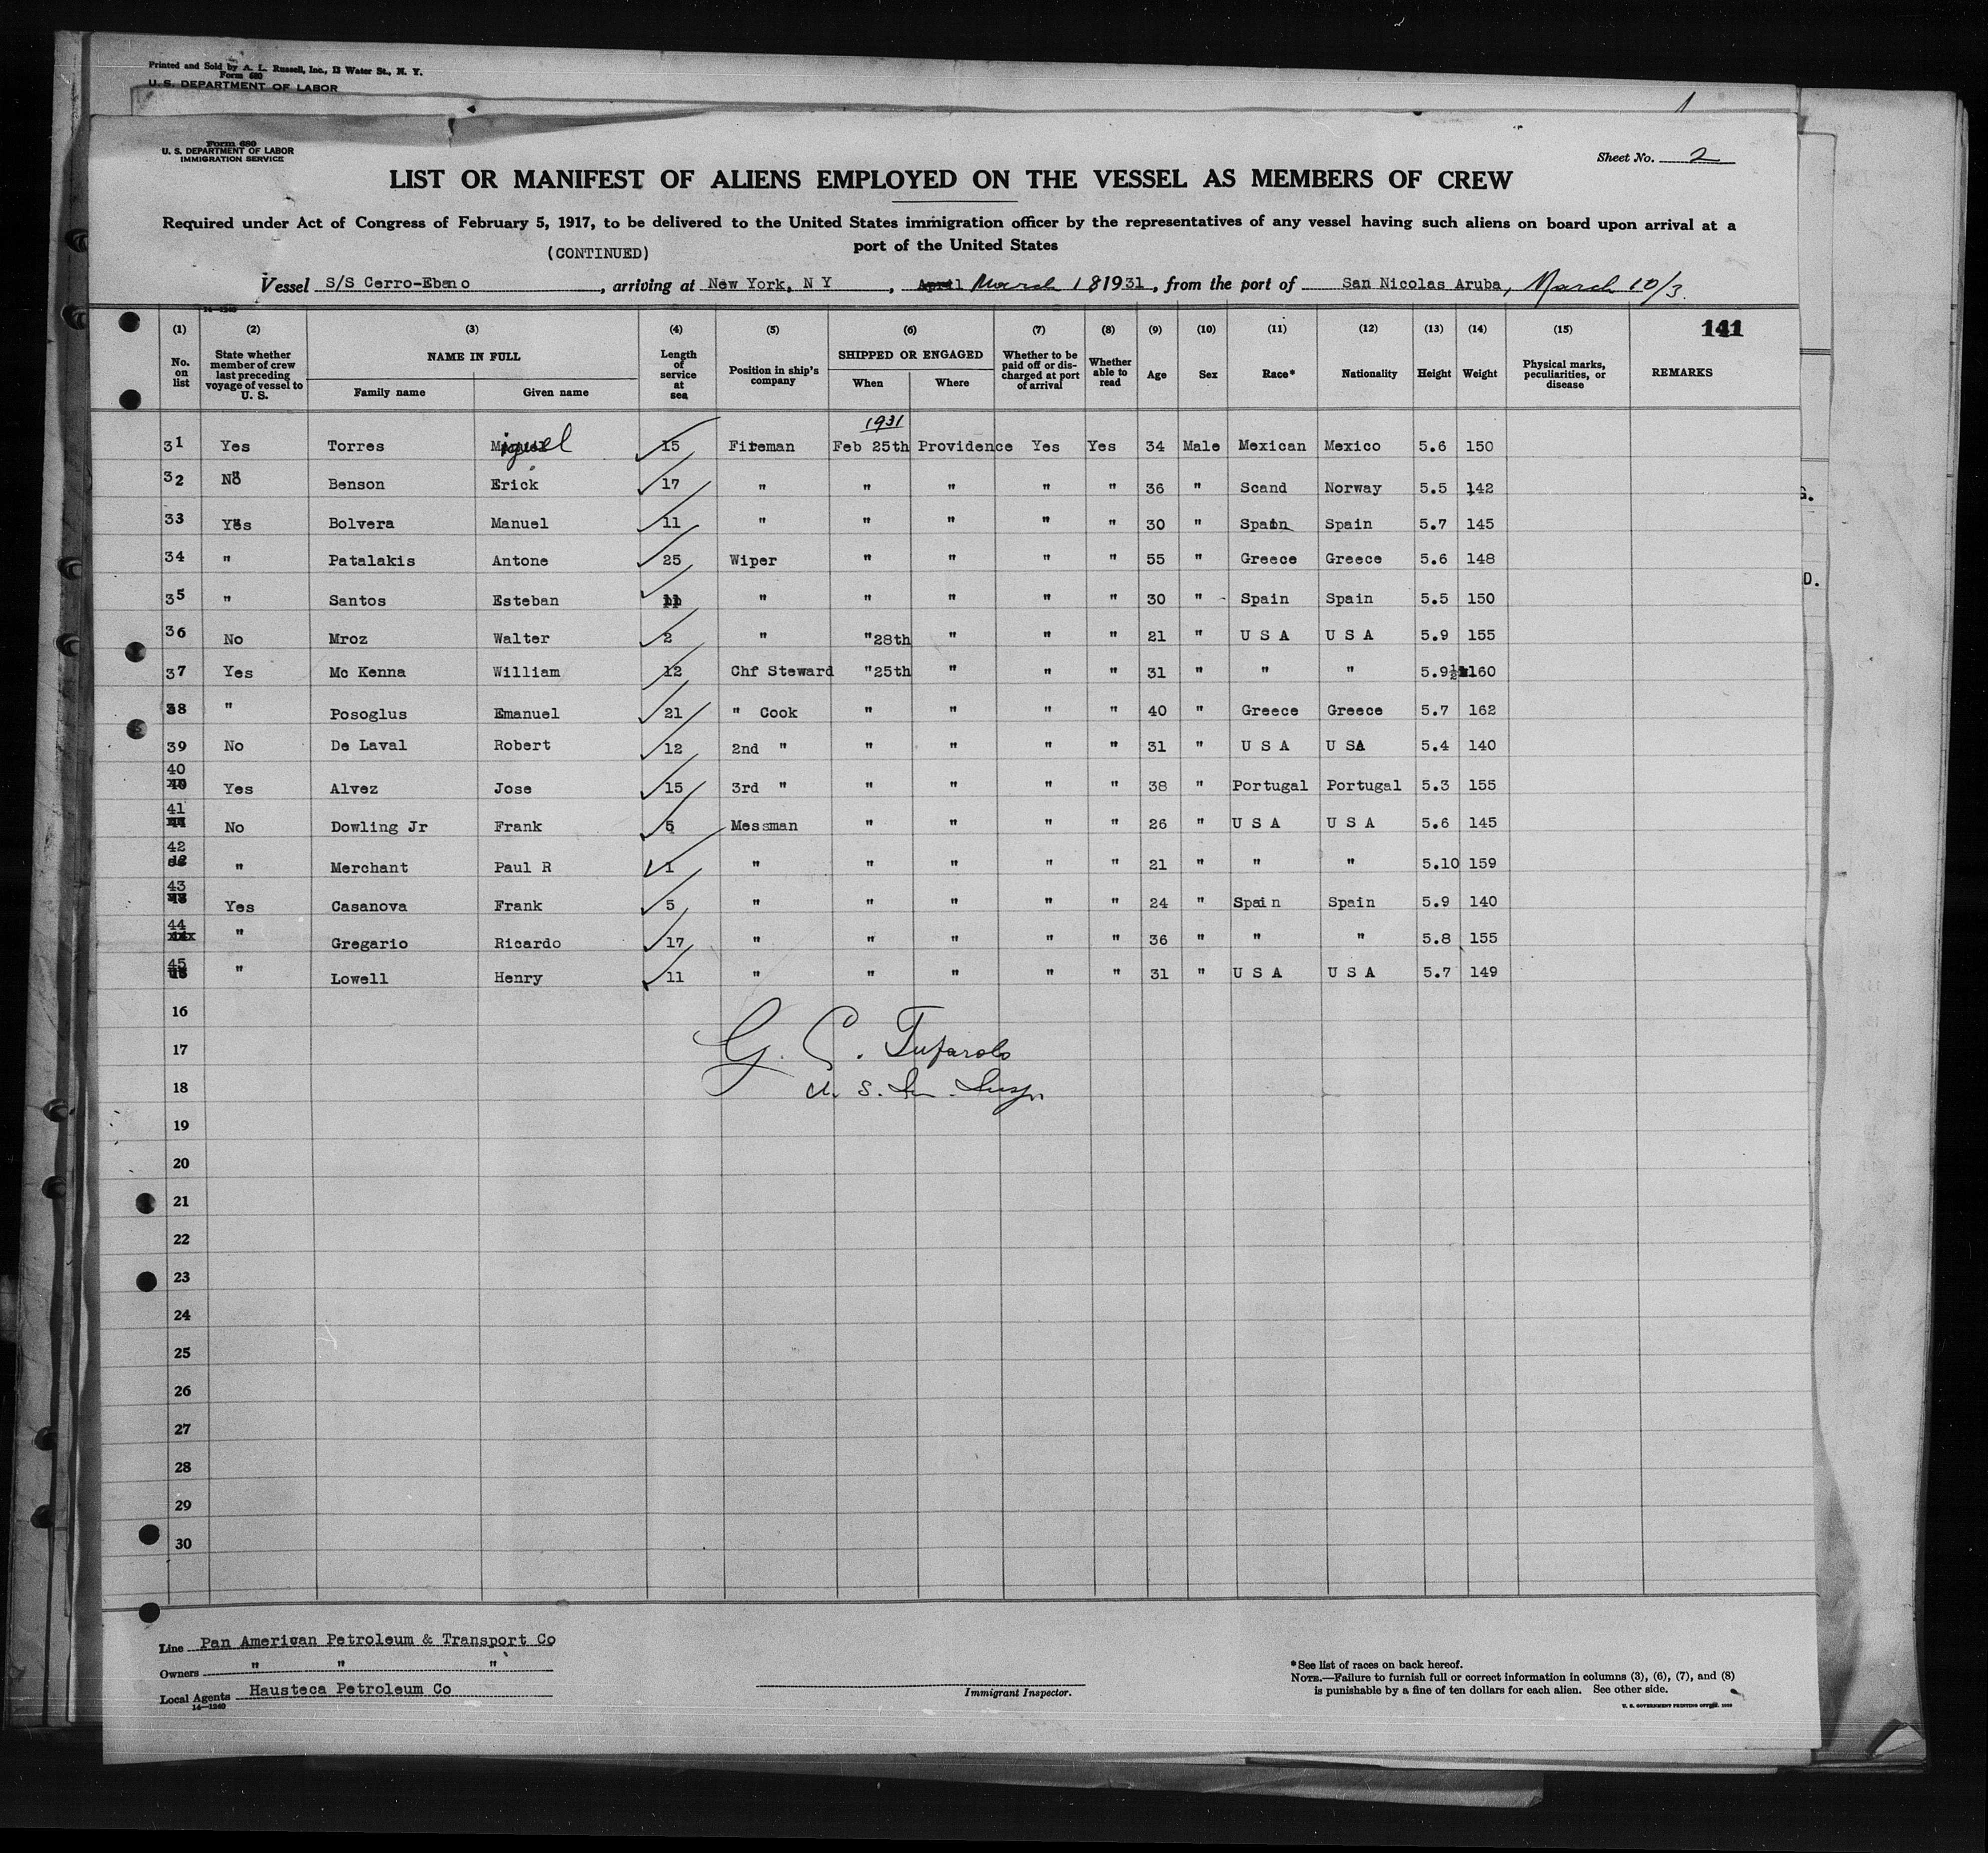 Printed and Sold by A. L. Russell, Inc., 13 Water St., N. Y.
Form 680
U. S. DEPARTMENT OF LABOR
1
Form 680
U. S. DEPARTMENT OF LABOR
IMMIGRATION SERVICE
Sheet No. 2
LIST OR MANIFEST OF ALIENS EMPLOYED ON THE VESSEL AS MEMBERS OF CREW
Required under Act of Congress of February 5, 1917, to be delivered to the United States immigration officer by the representatives of any vessel having such aliens on board upon arrival at a
(CONTINUED) port of the United States
Vessel S/S Cerro-Ebano, arriving at New York, N Y, April March 18 1931, from the port of San Nicolas Aruba, March 10/3.
14-1240
(1) (2) (3) (4) (5) (6) (7) (8) (9) (10) (11) (12) (13) (14) (15) 141
No. on list State whether member of crew last preceding voyage of vessel to U. S. NAME IN FULL Family name Given name Length of service at sea Position in ship's company SHIPPED OR ENGAGED When Where Whether to be paid off or discharged at port of arrival Whether able to read Age Sex Race* Nationality Height Weight Physical marks, peculiarities, or disease REMARKS
1931
31 Yes Torres Miguel 15 Fireman Feb 25th Providence Yes Yes 34 Male Mexican Mexico 5.6 150
32 No Benson Erick 17 " " " " " 36 " Scand Norway 5.5 142
33 Yes Bolvera Manuel 11 " " " " " 30 " Spain Spain 5.7 145
34 " Patalakis Antone 25 Wiper " " " " 55 " Greece Greece 5.6 148
35 " Santos Esteban 11 " " " " " 30 " Spain Spain 5.5 150
36 No Mroz Walter 2 " "28th " " " 21 " U S A U S A 5.9 155
37 Yes Mc Kenna William 12 Chf Steward "25th " " " 31 " " " 5.9½ 160
38 " Posoglus Emanuel 21 " Cook " " " " 40 " Greece Greece 5.7 162
39 No De Laval Robert 12 2nd " " " " " 31 " U S A U SA 5.4 140
40 Yes Alvez Jose 15 3rd " " " " " 38 " Portugal Portugal 5.3 155
41 No Dowling Jr Frank 5 Messman " " " " 26 " U S A U S A 5.6 145
42 " Merchant Paul R 1 " " " " " 21 " " " 5.10 159
43 Yes Casanova Frank 5 " " " " " 24 " Spain Spain 5.9 140
44 " Gregario Ricardo 17 " " " " " 36 " " " 5.8 155
45 " Lowell Henry 11 " " " " " 31 " U S A U S A 5.7 149
16
17 G. C. Tufarolo
18 U. S. Im. Insp.
19
20
21
22
23
24
25
26
27
28
29
30
Line Pan American Petroleum & Transport Co
Owners " " "
Local Agents Hausteca Petroleum Co
14-1240
Immigrant Inspector.
*See list of races on back hereof.
NOTE.—Failure to furnish full or correct information in columns (3), (6), (7), and (8)
is punishable by a fine of ten dollars for each alien. See other side.
U. S. GOVERNMENT PRINTING OFFICE
G.
D.